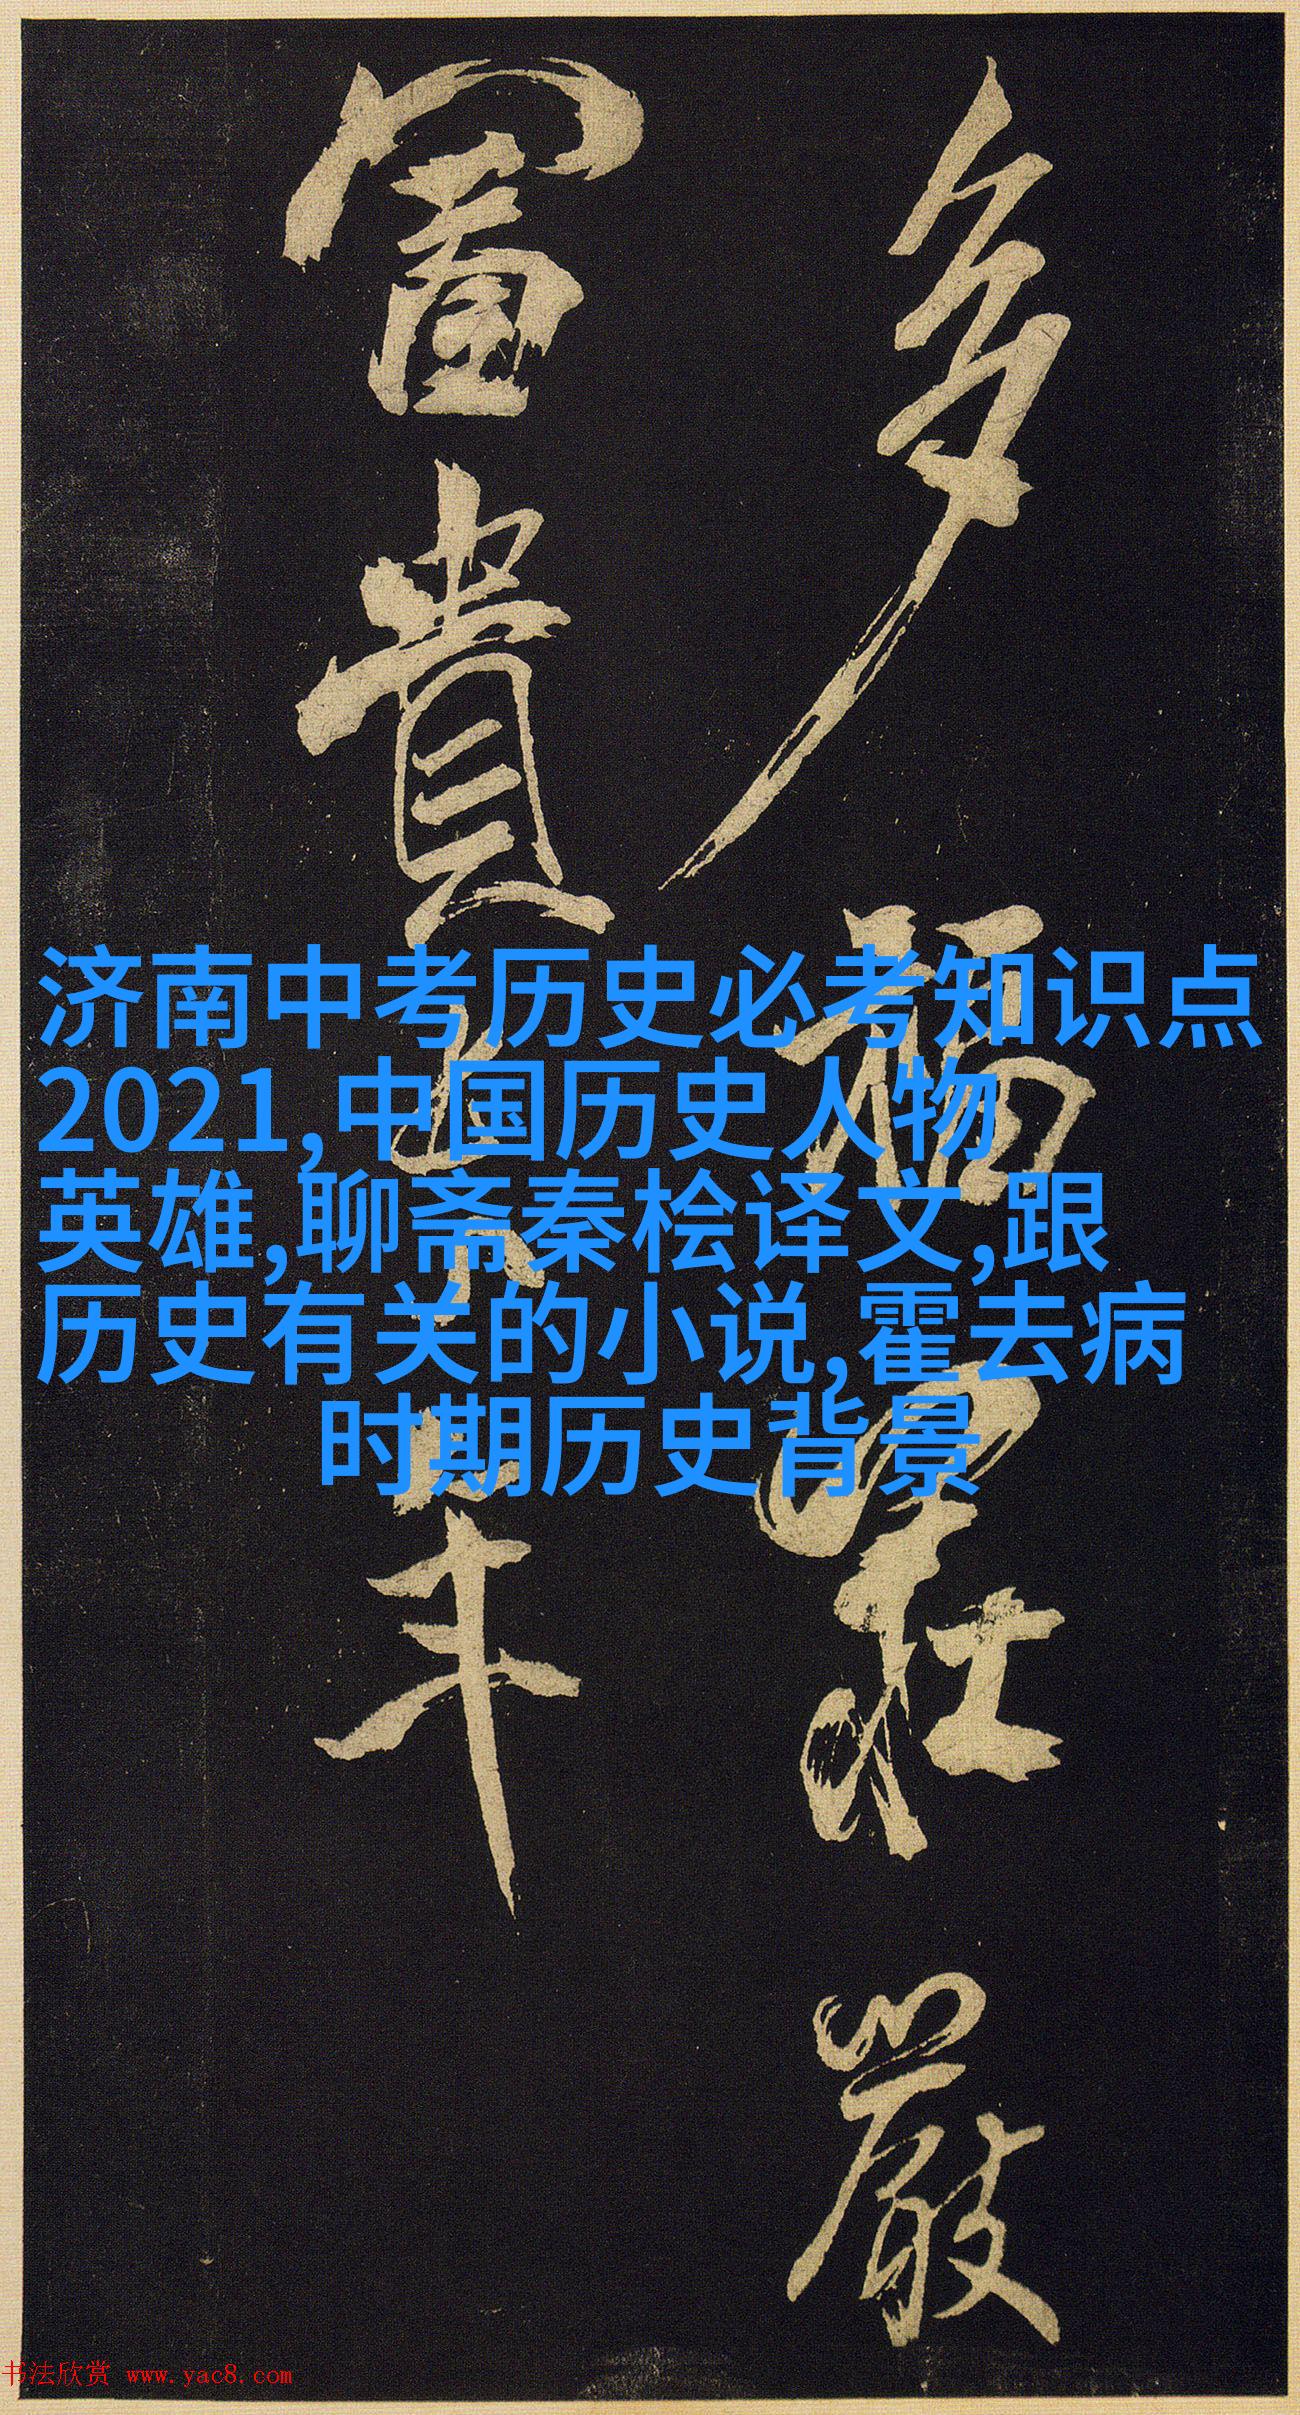 多福莊嚴
富貴
年
济南中考历史必考知识点
2021,中国历史人物
英雄,聊斋秦桧译文,跟
历史有关的小说,霍去病
时期历史背景
书法欣赏 www.yac8.com